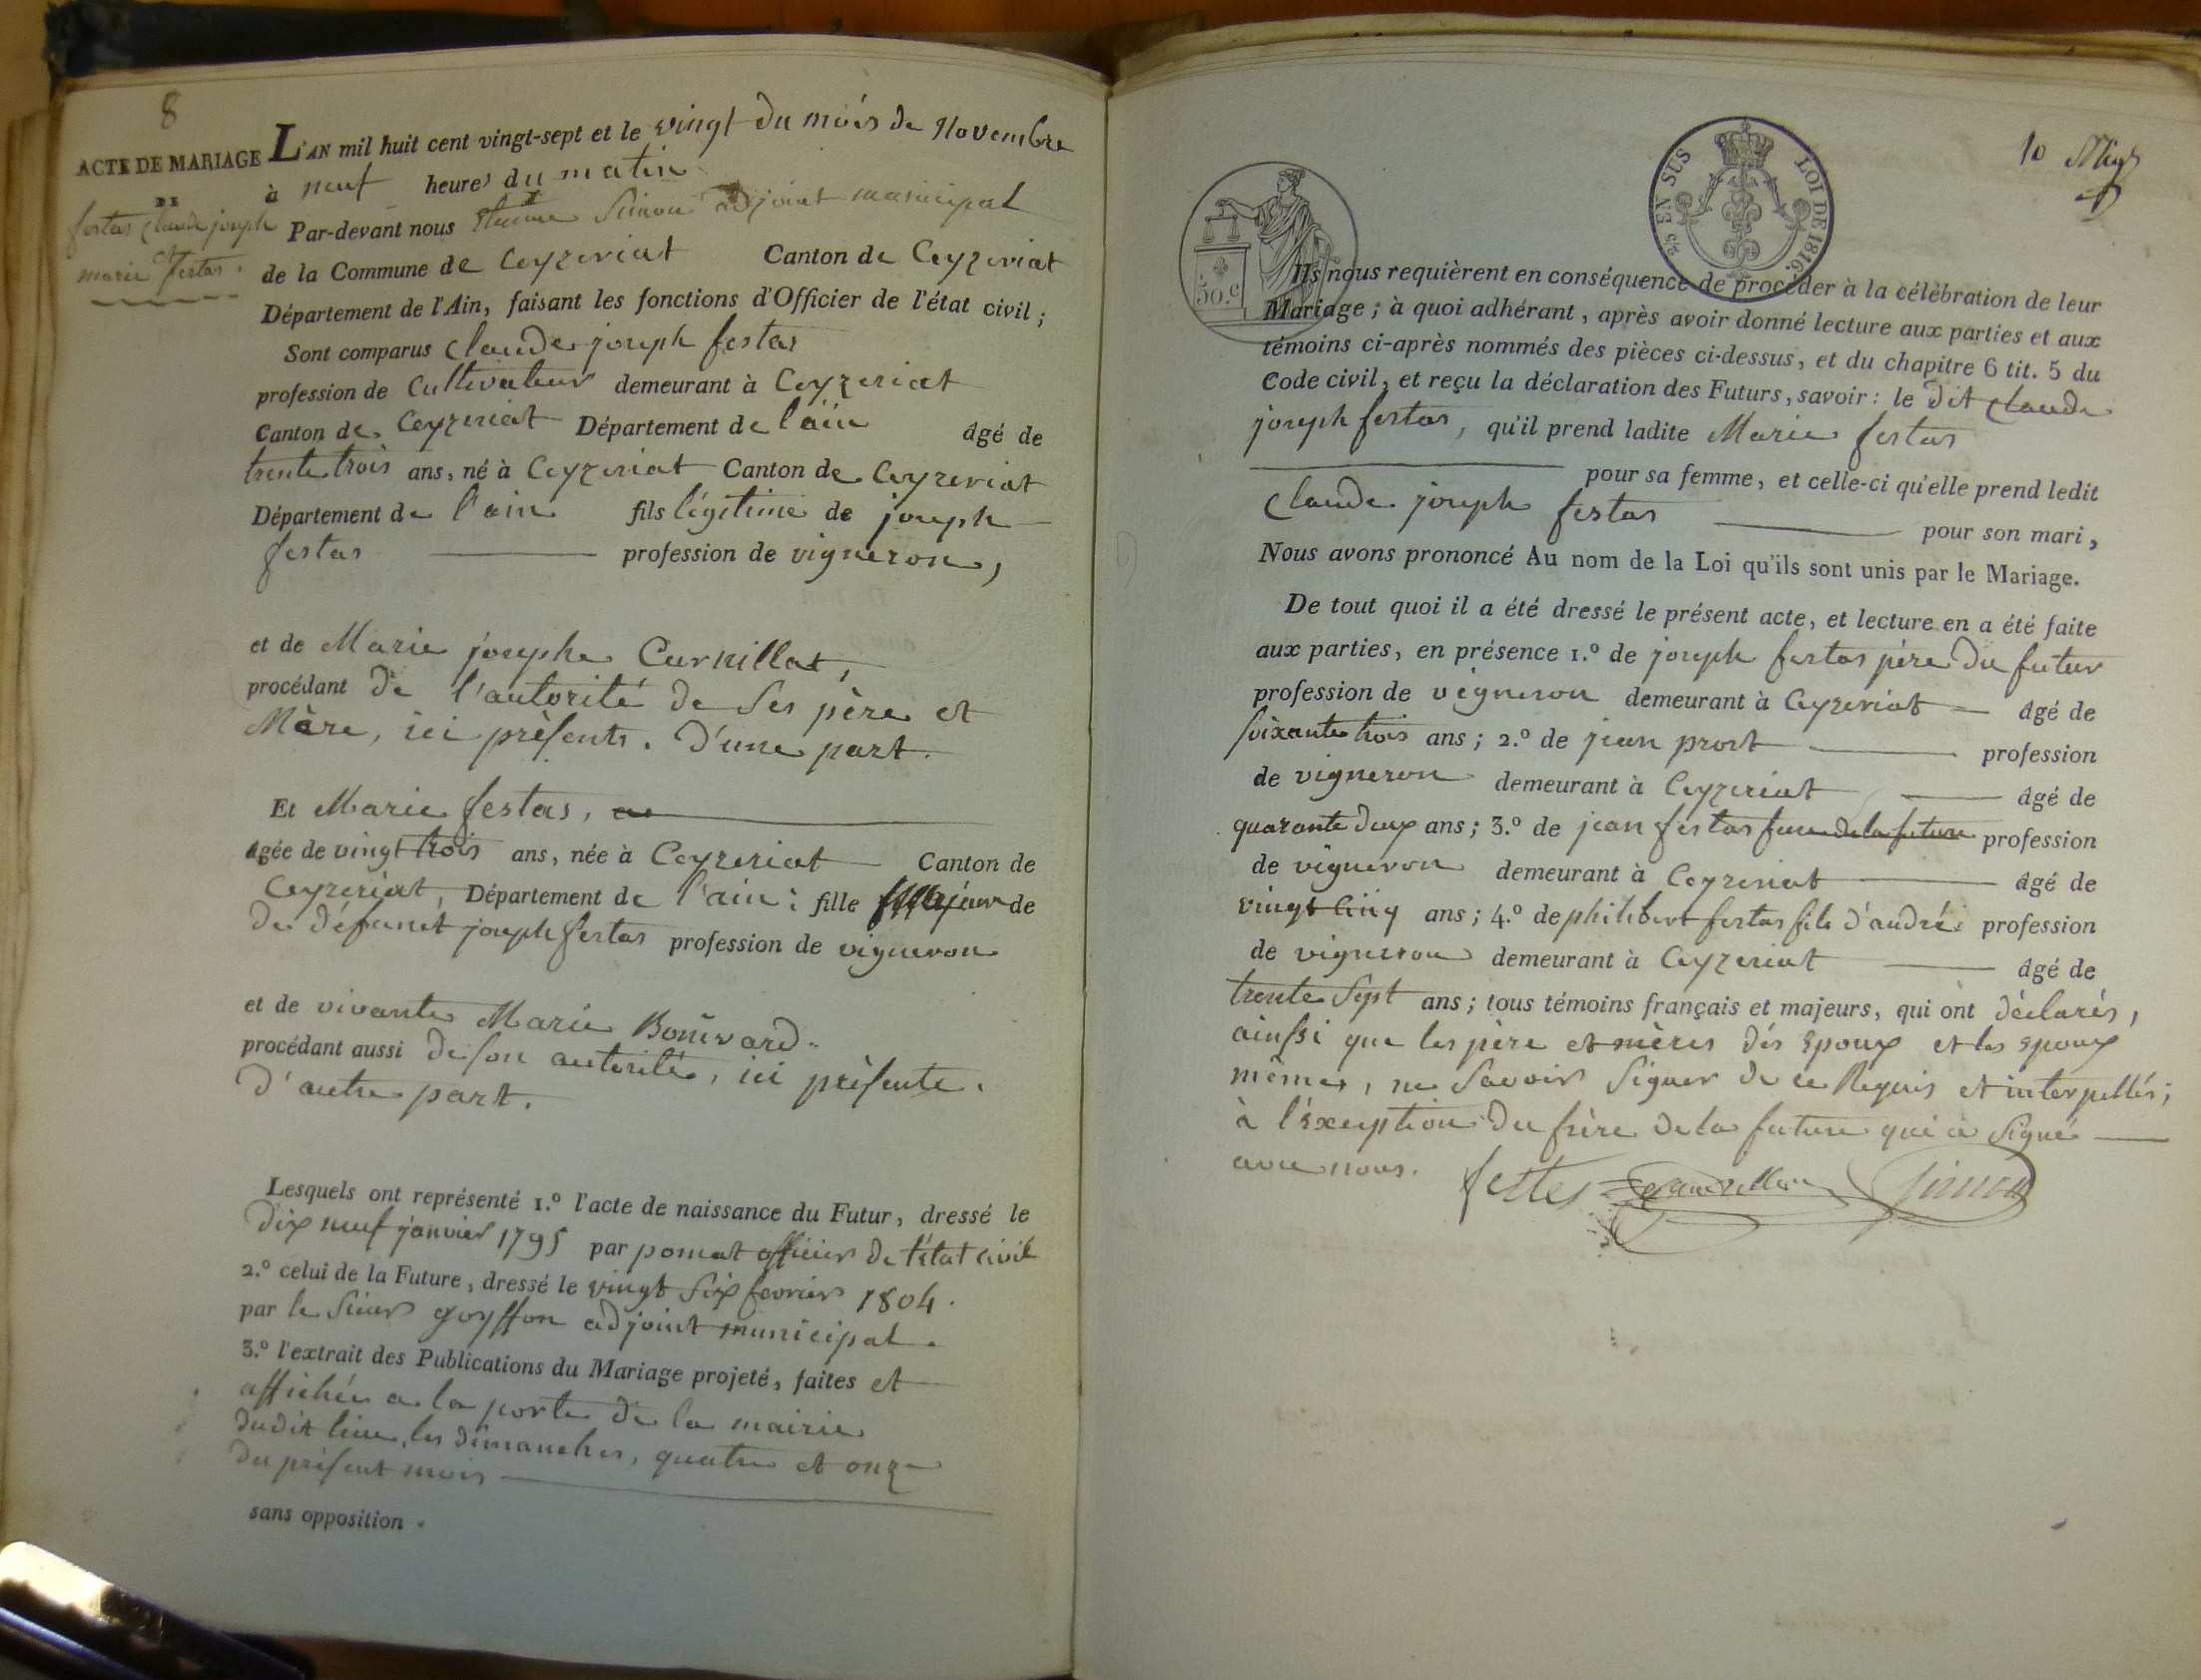 8
ACTE DE MARIAGE
DE
festas claude joseph
et
marie festas.
L'AN mil huit cent vingt-sept et le vingt du mois de Novembre
à neuf heures du matin
Par-devant nous Simon adjoint municipal
de la Commune de Ceyzeriat Canton de Ceyzeriat
Département de l'Ain, faisant les fonctions d'Officier de l'état civil ;
Sont comparus Claude joseph festas
profession de Cultivateur demeurant à Ceyzeriat
Canton de Ceyzeriat Département de l'ain âgé de
trente trois ans, né à Ceyzeriat Canton de Ceyzeriat
Département de l'ain fils légitime de joseph
festas profession de vigneron,
et de Marie josephe Curnillat,
procédant de l'autorité de ses père et
Mère, ici présents. D'une part.
Et Marie festas,
âgée de vingt trois ans, née à Ceyzeriat Canton de
Ceyzeriat, Département de l'ain ; fille de
de défunct joseph festas profession de vigneron
et de vivante Marie Bonivard
procédant aussi de son autorité, ici présente.
D'autre part.
Lesquels ont représenté 1.º l'acte de naissance du Futur, dressé le
dix neuf janvier 1795 par pomat officier de l'état civil
2.º celui de la Future, dressé le vingt six fevrier 1804.
par le Sieur goyffon adjoint municipal.
3.º l'extrait des Publications du Mariage projeté, faites et
affichées a la porte de la mairie
dudit lieu, les dimanches, quatre et onze
du présent mois
sans opposition.
10
50.c
2/5 EN SUS LOI DE 1816.
Ils nous requièrent en conséquence de procéder à la célèbration de leur
Mariage ; à quoi adhérant, après avoir donné lecture aux parties et aux
témoins ci-après nommés des pièces ci-dessus, et du chapitre 6 tit. 5 du
Code civil, et reçu la déclaration des Futurs, savoir : le dit Claude
joseph festas, qu'il prend ladite Marie festas
pour sa femme, et celle-ci qu'elle prend ledit
Claude joseph festas pour son mari,
Nous avons prononcé Au nom de la Loi qu'ils sont unis par le Mariage.
De tout quoi il a été dressé le présent acte, et lecture en a été faite
aux parties, en présence 1.º de joseph festas père du futur
profession de vigneron demeurant à Ceyzeriat âgé de
soixante trois ans ; 2.º de jean prost profession
de vigneron demeurant à Ceyzeriat âgé de
quarante deux ans ; 3.º de jean festas frere de la future profession
de vigneron demeurant à Ceyzeriat âgé de
vingt cinq ans ; 4.º de philibert festas fils d'andré profession
de vigneron demeurant à Ceyzeriat âgé de
trente sept ans ; tous témoins français et majeurs, qui ont déclarés,
ainssi que les père et mères dés Epoux et les Epoux
mêmes, ne Savoir Signer de ce Requis et interpellés ;
à l'Exception du frère de la future qui a Signé
avec nous. festas Simon